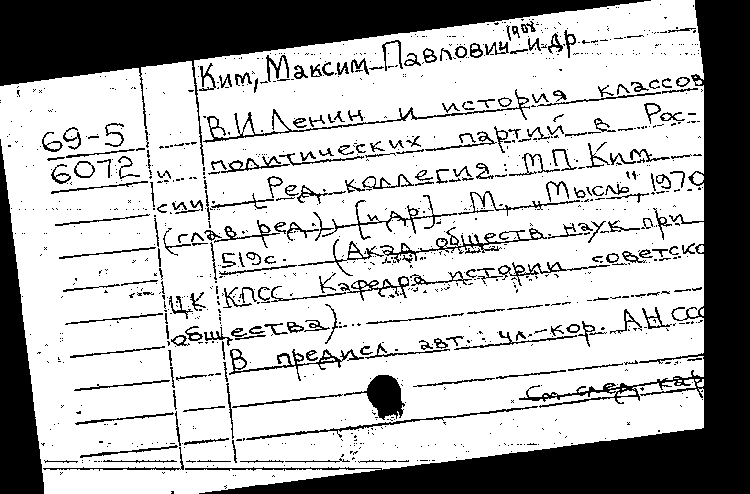 1908
Ким, Максим Павлович и др.
69-5
6072
В.И. Ленин и история классов
и политических партий в Рос-
сии. [Ред. коллегия: М.П. Ким
(глав. ред.), [и др.]. М., "Мысль", 1970
519с. (Акад. обществ. наук при
ЦК КПСС. Кафедра истории советско
общества).
В предисл. авт.: чл.-кор. АН ССС
См след. кар